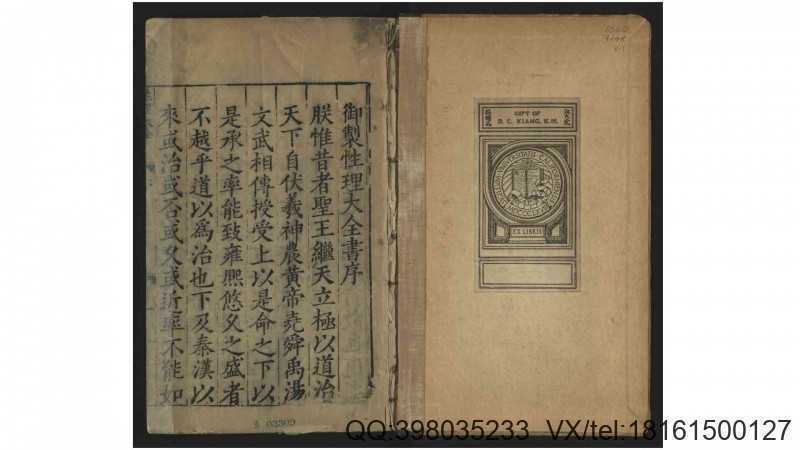 御製性理大全書序
朕惟昔者聖王繼天立極以道治
天下自伏羲神農黄帝堯舜禹湯
文武相傳授受上以是命之下以
是承之率能致雍熙悠久之盛者
不越乎道以爲治也下及秦漢以
來或治或否或久或近率不能如
GIFT OF
D. C. KIANG, K.H.
EX LIBRIS
3 03303
QQ:398035233 VX/tel:18161500127